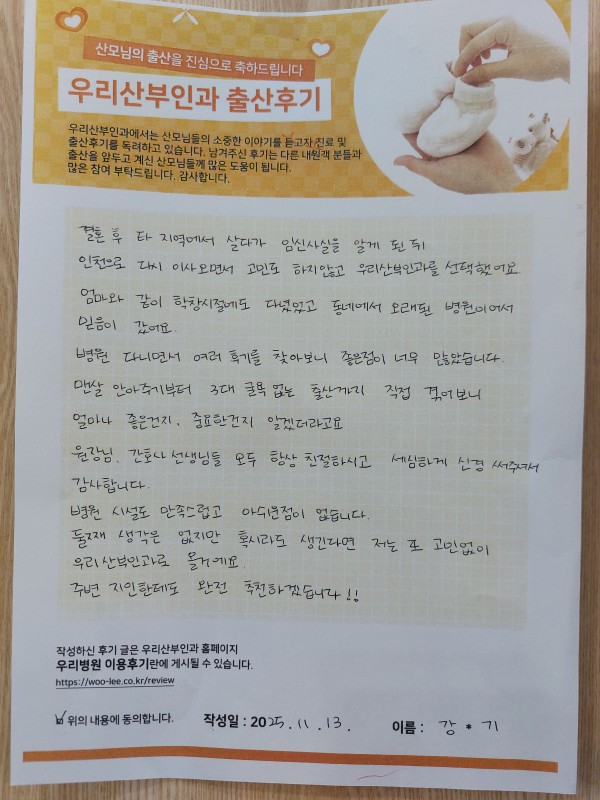 산모님의 출산을 진심으로 축하드립니다
우리산부인과 출산후기
우리산부인과에서는 산모님들의 소중한 이야기를 듣고자 진료 및
출산후기를 독려하고 있습니다. 남겨주신 후기는 다른 내원객 분들과
출산을 앞두고 계신 산모님들께 많은 도움이 됩니다.
많은 참여 부탁드립니다. 감사합니다.
결혼 후 타 지역에서 살다가 임신사실을 알게 된 뒤
인천으로 다시 이사오면서 고민도 하지않고 우리산부인과를 선택했어요
엄마와 같이 학창시절에도 다녔었고 동네에서 오래된 병원이어서
믿음이 갔어요.
병원 다니면서 여러 후기를 찾아보니 좋은점이 너무 많았습니다.
맨살 안아주기부터 3대 굴욕 없는 출산까지 직접 겪어보니
얼마나 좋은건지, 중요한건지 알겠더라고요
원장님, 간호사 선생님들 모두 항상 친절하시고 세심하게 신경 써주셔서
감사합니다.
병원 시설도 만족스럽고 아쉬운점이 없습니다.
둘째 생각은 없지만 혹시라도 생긴다면 저는 또 고민없이
우리산부인과로 올거에요.
주변 지인한테도 완전 추천하겠습니다!!
작성하신 후기 글은 우리산부인과 홈페이지
우리병원 이용후기란에 게시될 수 있습니다.
https://woo-lee.co.kr/review
위의 내용에 동의합니다. 작성일 : 2025. 11. 13. 이름 : 강 * 기